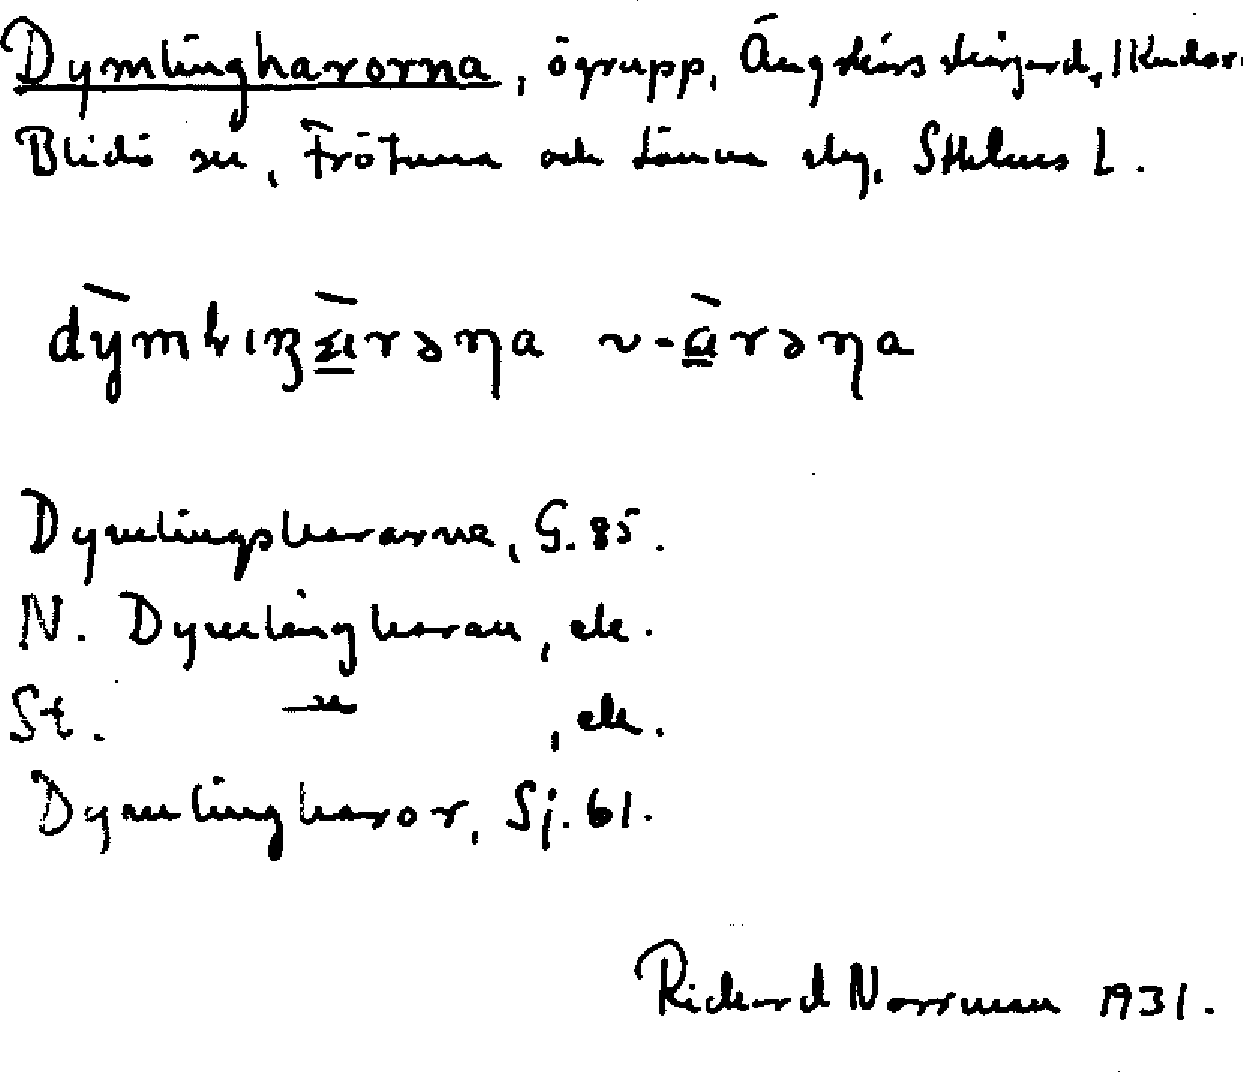 Dymlingharorna, ögrupp, Ängskärs skärgård, i Kudox.
Blidö sn, Frötuna och Länna skg, Sthlms l.
dỳmlıŋàrəɳa ~-àrəɳa
Dymlingsharorne, G. 85.
N. Dymlingharan, ek.
St. –"– , ek.
Dymlingharor, Sj. 61.
Rickard Norrman 1931.